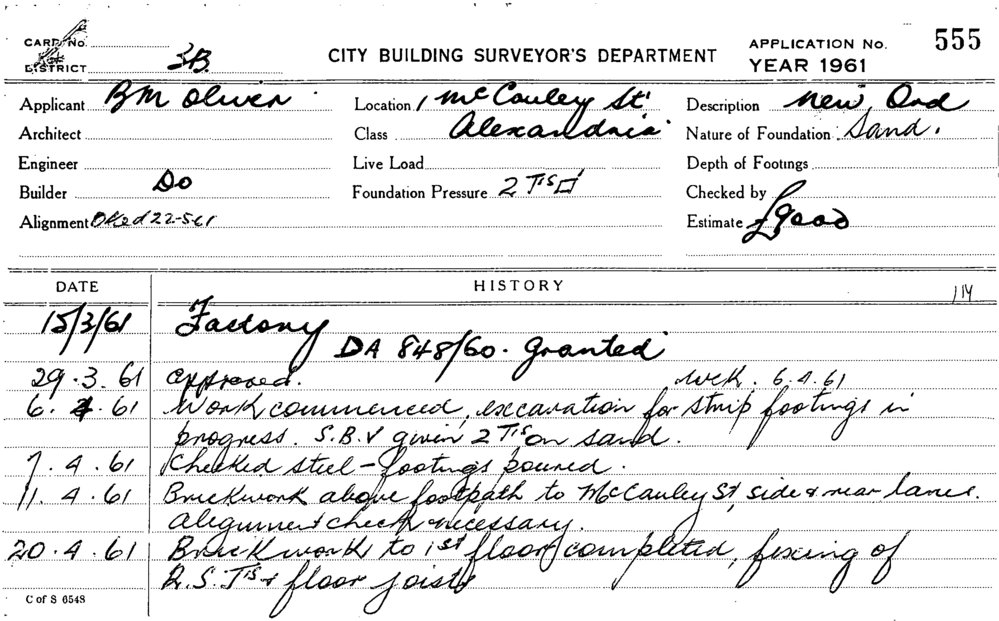 CARD No.
DISTRICT 3B.
CITY BUILDING SURVEYOR'S DEPARTMENT
APPLICATION No. 555
YEAR 1961
Applicant BM Oliver
Location 1 McCauley St
Description New Ord
Architect
Class Alexandria
Nature of Foundation Sand.
Engineer
Live Load
Depth of Footings
Builder Do
Foundation Pressure 2 Tns □'
Checked by
Alignment OKed 22-5-61
Estimate £9000
DATE HISTORY
114
15/3/61 Factory
DA 848/60. Granted
29.3.61 approved. 6.4.61
6.4.61 Work commenced, excavation for strip footings in
progress. S.B.V given 2 Tns on sand.
7.4.61 Checked steel - footings poured.
11.4.61 Brickwork above footpath to McCauley St, side & rear lanes.
alignment check necessary.
20.4.61 Brickwork to 1st floor completed, fixing of
R.S.Js & floor joists
C of S 6548